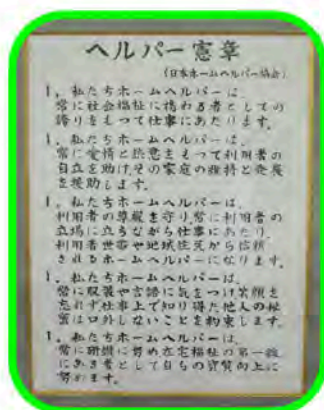 ヘルパー憲章
(日本ホームヘルパー協会)
1. 私たちホームヘルパーは、
常に社会福祉に携わる者としての
誇りをもって仕事にあたります。
1. 私たちホームヘルパーは、
常に愛情と熱意をもって利用者の
自立を助け、その家庭の維持と発展
を援助します。
1. 私たちホームヘルパーは、
利用者の尊厳を守り、常に利用者の
立場に立ちながら仕事にあたり、
利用者世帯や地域住民から信頼
されるホームヘルパーになります。
1. 私たちホームヘルパーは、
常に服装や言語に気をつけ笑顔を
忘れず仕事上で知り得た他人の秘
密は口外しないことを約束します。
1. 私たちホームヘルパーは、
常に研鑽に努め在宅福祉の第一線
にある者として自らの資質向上に
努めます。